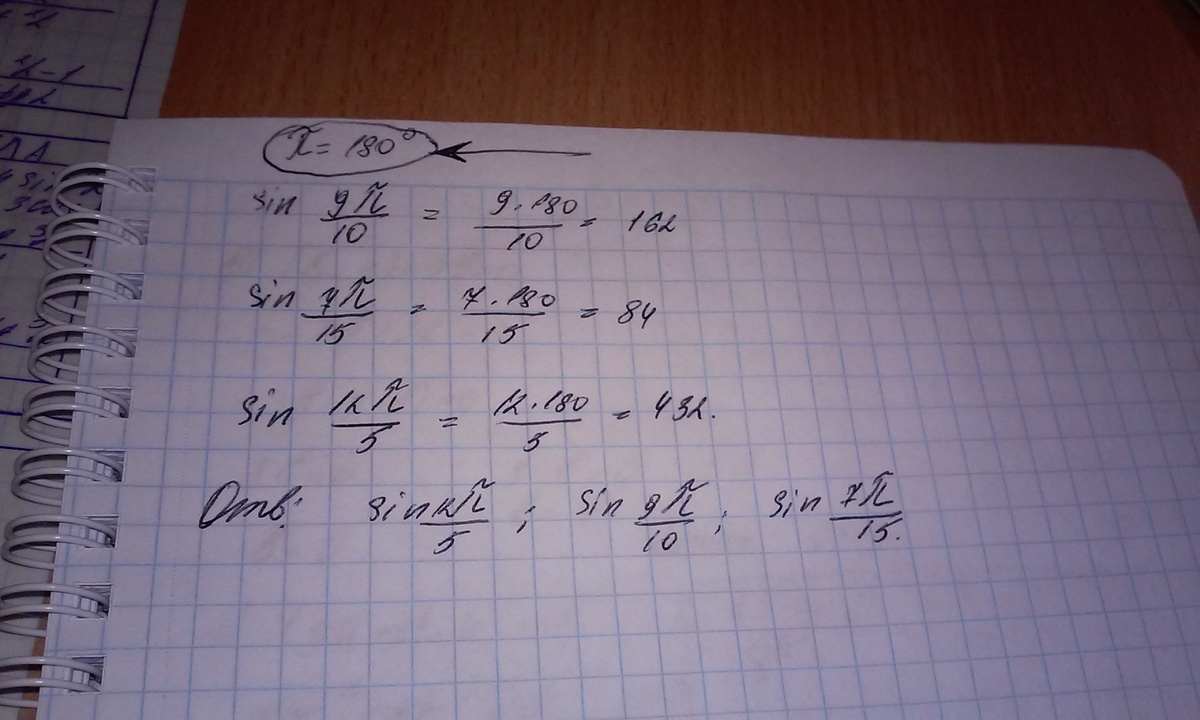 π = 180°
sin 9π/10 = 9·180/10 = 162
sin 7π/15 = 7·180/15 = 84
sin 12π/5 = 12·180/5 = 432.
Отв: sin 12π/5 ; sin 9π/10 ; sin 7π/15.